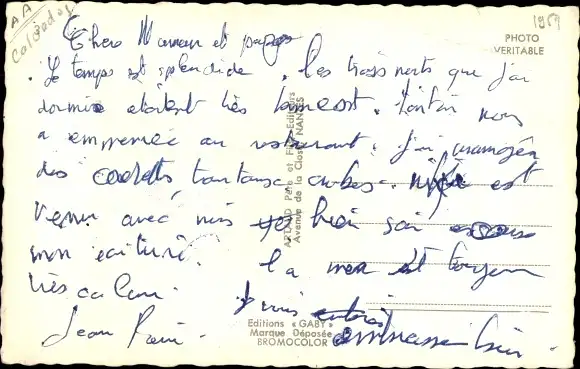 AA
Calvados
1959
PHOTO
VERITABLE
Chers Maman et papa
Le temps est splendide. Les trois nuits que j'ai
dormis étaient très bonnes. tonton nous
a emmenée au restaurant. j'ai mangée
des tourteaux crabes. est
venu avec nous hier soir
mon écriture. la mer est toujours
très calme.
Je vous embrasse bien.
Jean
ARTAUD Père et Fils, Editeurs
Avenue de la Close, NANTES
Editions « GABY »
Marque Déposée
BROMOCOLOR